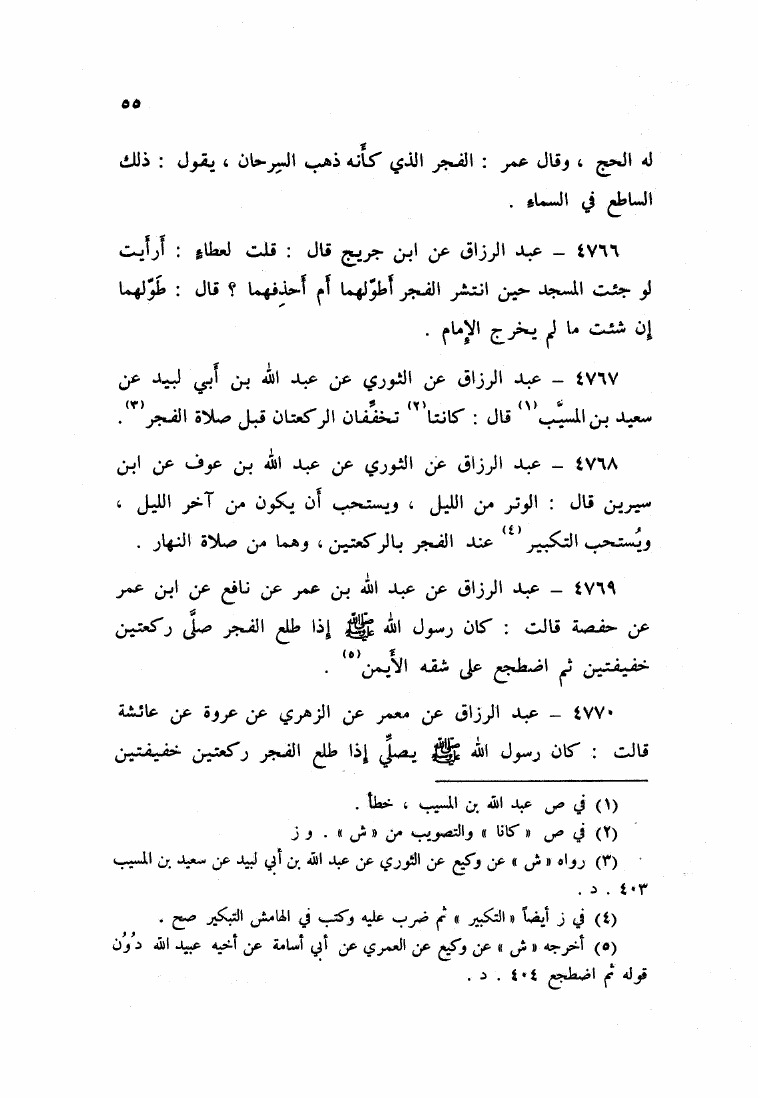 ٥٥
له الحج ، وقال عمر : الفجر الذي كأَنه ذهب السِرحان ، يقول : ذلك
الساطع في السماءِ .
٤٧٦٦ ـ عبد الرزاق عن ابن جريج قال : قلت لعطاءٍ : أَرأَيت
لو جئت المسجد حين انتشر الفجر أَطوّلهما أَم أَحذِفهما ؟ قال : طَوّلهما
إن شئت ما لم يخرج الإِمام .
٤٧٦٧ ـ عبد الرزاق عن الثوري عن عبد الله بن أَبي لبيد عن
سعيد بن المسيَّب(١) قال : كانتا(٢) تخفِّفان الركعتان قبل صلاة الفجر(٣).
٤٧٦٨ ـ عبد الرزاق عن الثوري عن عبد الله بن عوف عن ابن
سيرين قال : الوتر من الليل ، ويستحب أَن يكون من آخر الليل ،
ويُستحب التكبير(٤) عند الفجر بالركعتين ، وهما من صلاة النهار .
٤٧٦٩ ـ عبد الرزاق عن عبد الله بن عمر عن نافع عن ابن عمر
عن حفصة قالت : كان رسول الله ﷺ إِذا طلع الفجر صلَّى ركعتين
خفيفتين ثم اضطجع على شقه الأَيمن(٥) .
٤٧٧٠ ـ عبد الرزاق عن معمر عن الزهري عن عروة عن عائشة
قالت : كان رسول الله ﷺ يصلِّي إِذا طلع الفجر ركعتين خفيفتين
(١) في ص عبد الله بن المسيب ، خطأ .
(٢) في ص « كانا » والتصويب من « ش » . و ز
(٣) رواه « ش » عن وكيع عن الثوري عن عبد الله بن أبي لبيد عن سعيد بن المسيب
٤٠٣ . د .
(٤) في ز أيضاً « التكبير » ثم ضرب عليه وكتب في الهامش التبكير صح .
(٥) أخرجه « ش » عن وكيع عن العمري عن أبي أسامة عن أخيه عبيد الله دُوُن
قوله ثم اضطجع ٤٠٤ . د .